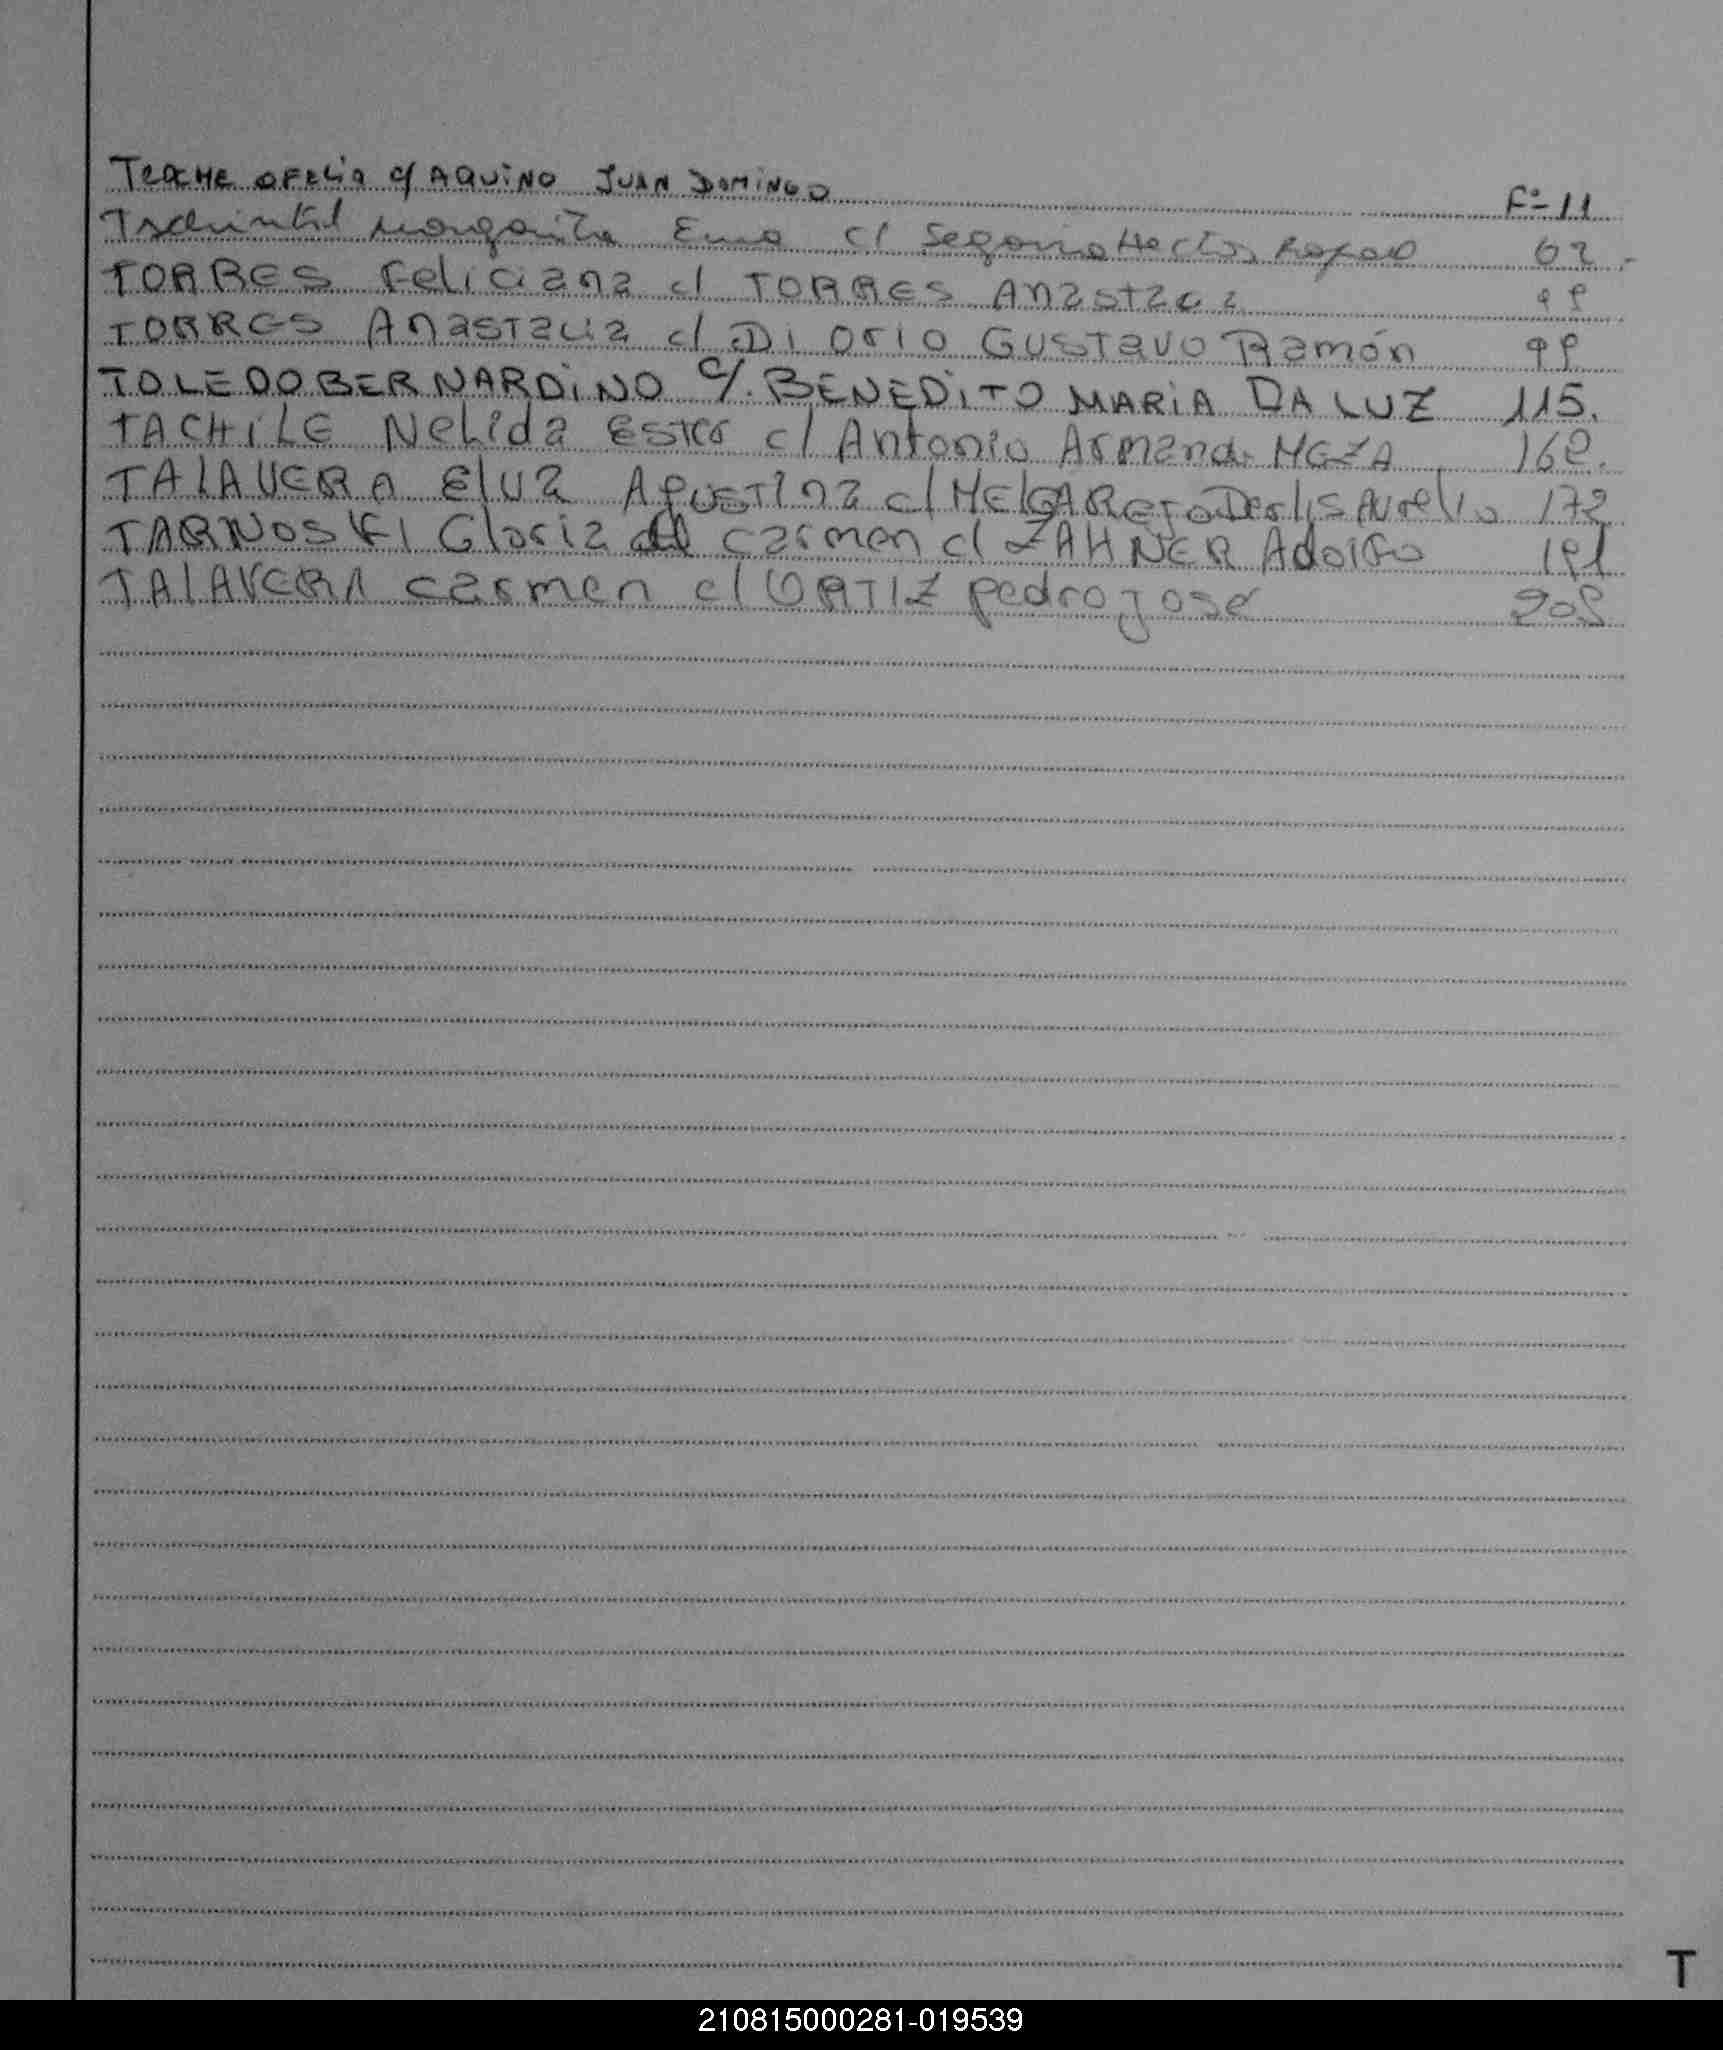 TEACHE OFELIA c/ AQUINO JUAN DOMINGO F=11
Margarita Ema c/ Segovia Hector Rafael 62
TORRES Feliciana c/ TORRES Anastacia 99
TORRES Anastacia c/ DI Orio Gustavo Ramón 99
TOLEDO BERNARDINO c/. BENEDITO MARIA DA LUZ 115.
TACHILE Nelida Ester c/ Antonio Armando MEZA 169.
TALAVERA Elva Agustina c/ MELGAREJO Derlis Aurelio 172
TARNOSKI Gloria del carmen c/ ZAHNER Adolfo 191
TALAVERA carmen c/ ORTIZ pedro jose 209
T
210815000281-019539